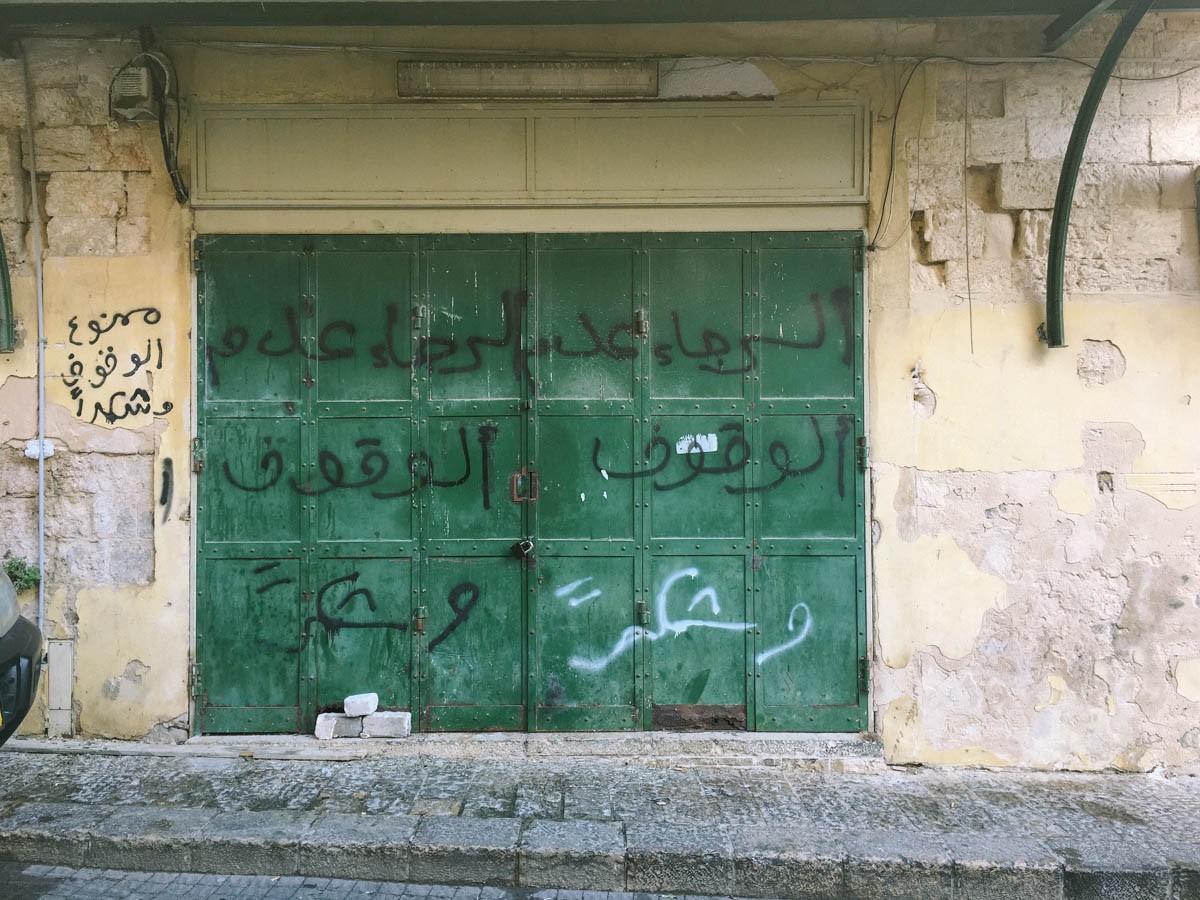 الرجاء عدم
الوقوف
وشكرً
الرجاء عدم
الوقوف
وشكرً
ممنوع
الوقوف
وشكراً